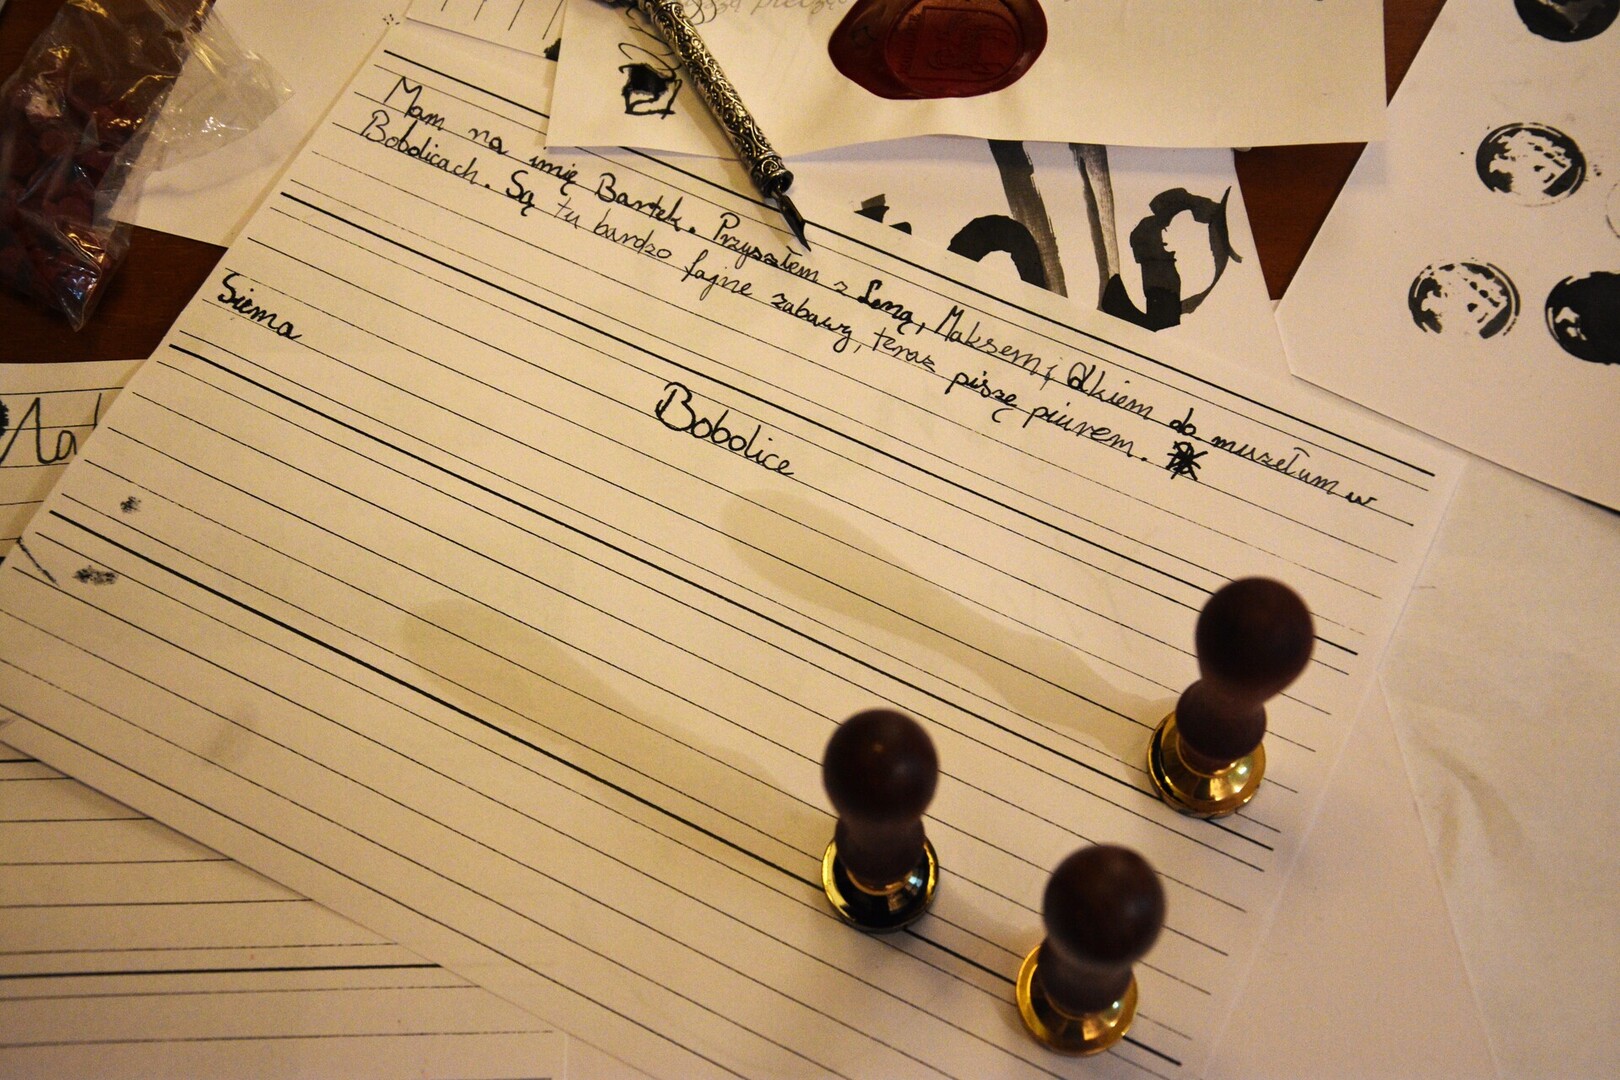 Mam na imię Bartek. Przyszłem z Leną, Maksem i Olkiem do muzełum w
Bobolicach. Są tu bardzo fajne zabawy, teraz piszę piurem.
Siema
Bobolice